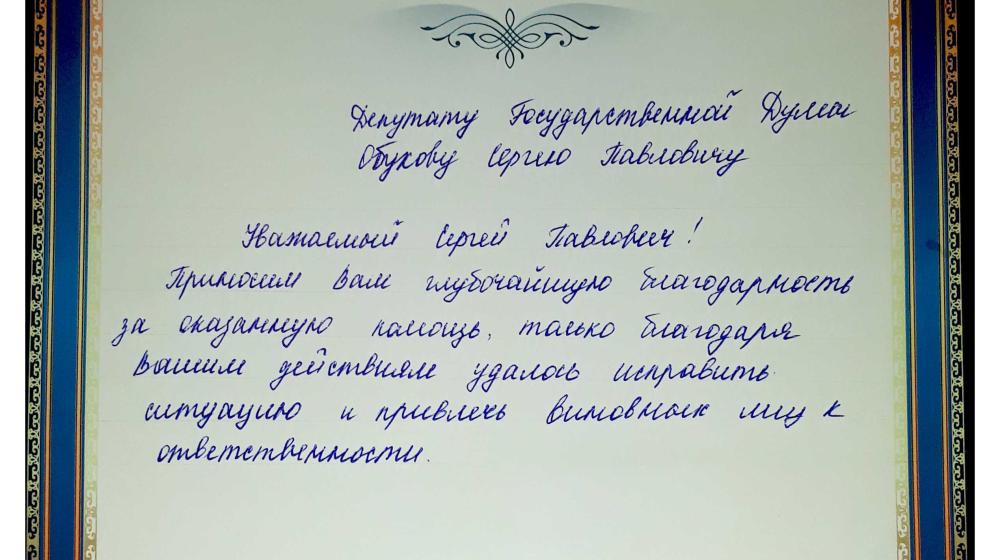 Депутату Государственной Думы
Обухову Сергею Павловичу
Уважаемый Сергей Павлович!
Приносим Вам глубочайшую благодарность
за оказанную помощь, только благодаря
Вашим действиям удалось исправить
ситуацию и привлечь виновных лиц к
ответственности.